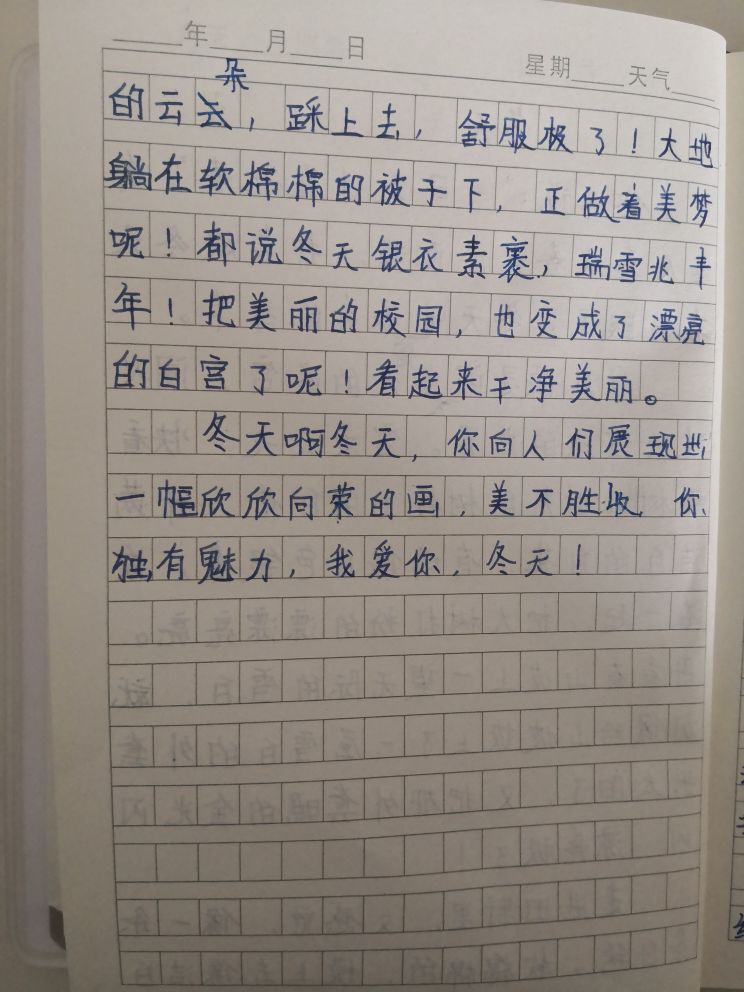 ____年____月____日 星期____天气____
的云朵，踩上去，舒服极了！大地
躺在软棉棉的被子下，正做着美梦
呢！都说冬天银衣素裹，瑞雪兆丰
年！把美丽的校园，也变成了漂亮
的白宫了呢！看起来干净美丽。
冬天啊冬天，你向人们展现出
一幅欣欣向荣的画，美不胜收，你
独有魅力，我爱你，冬天！